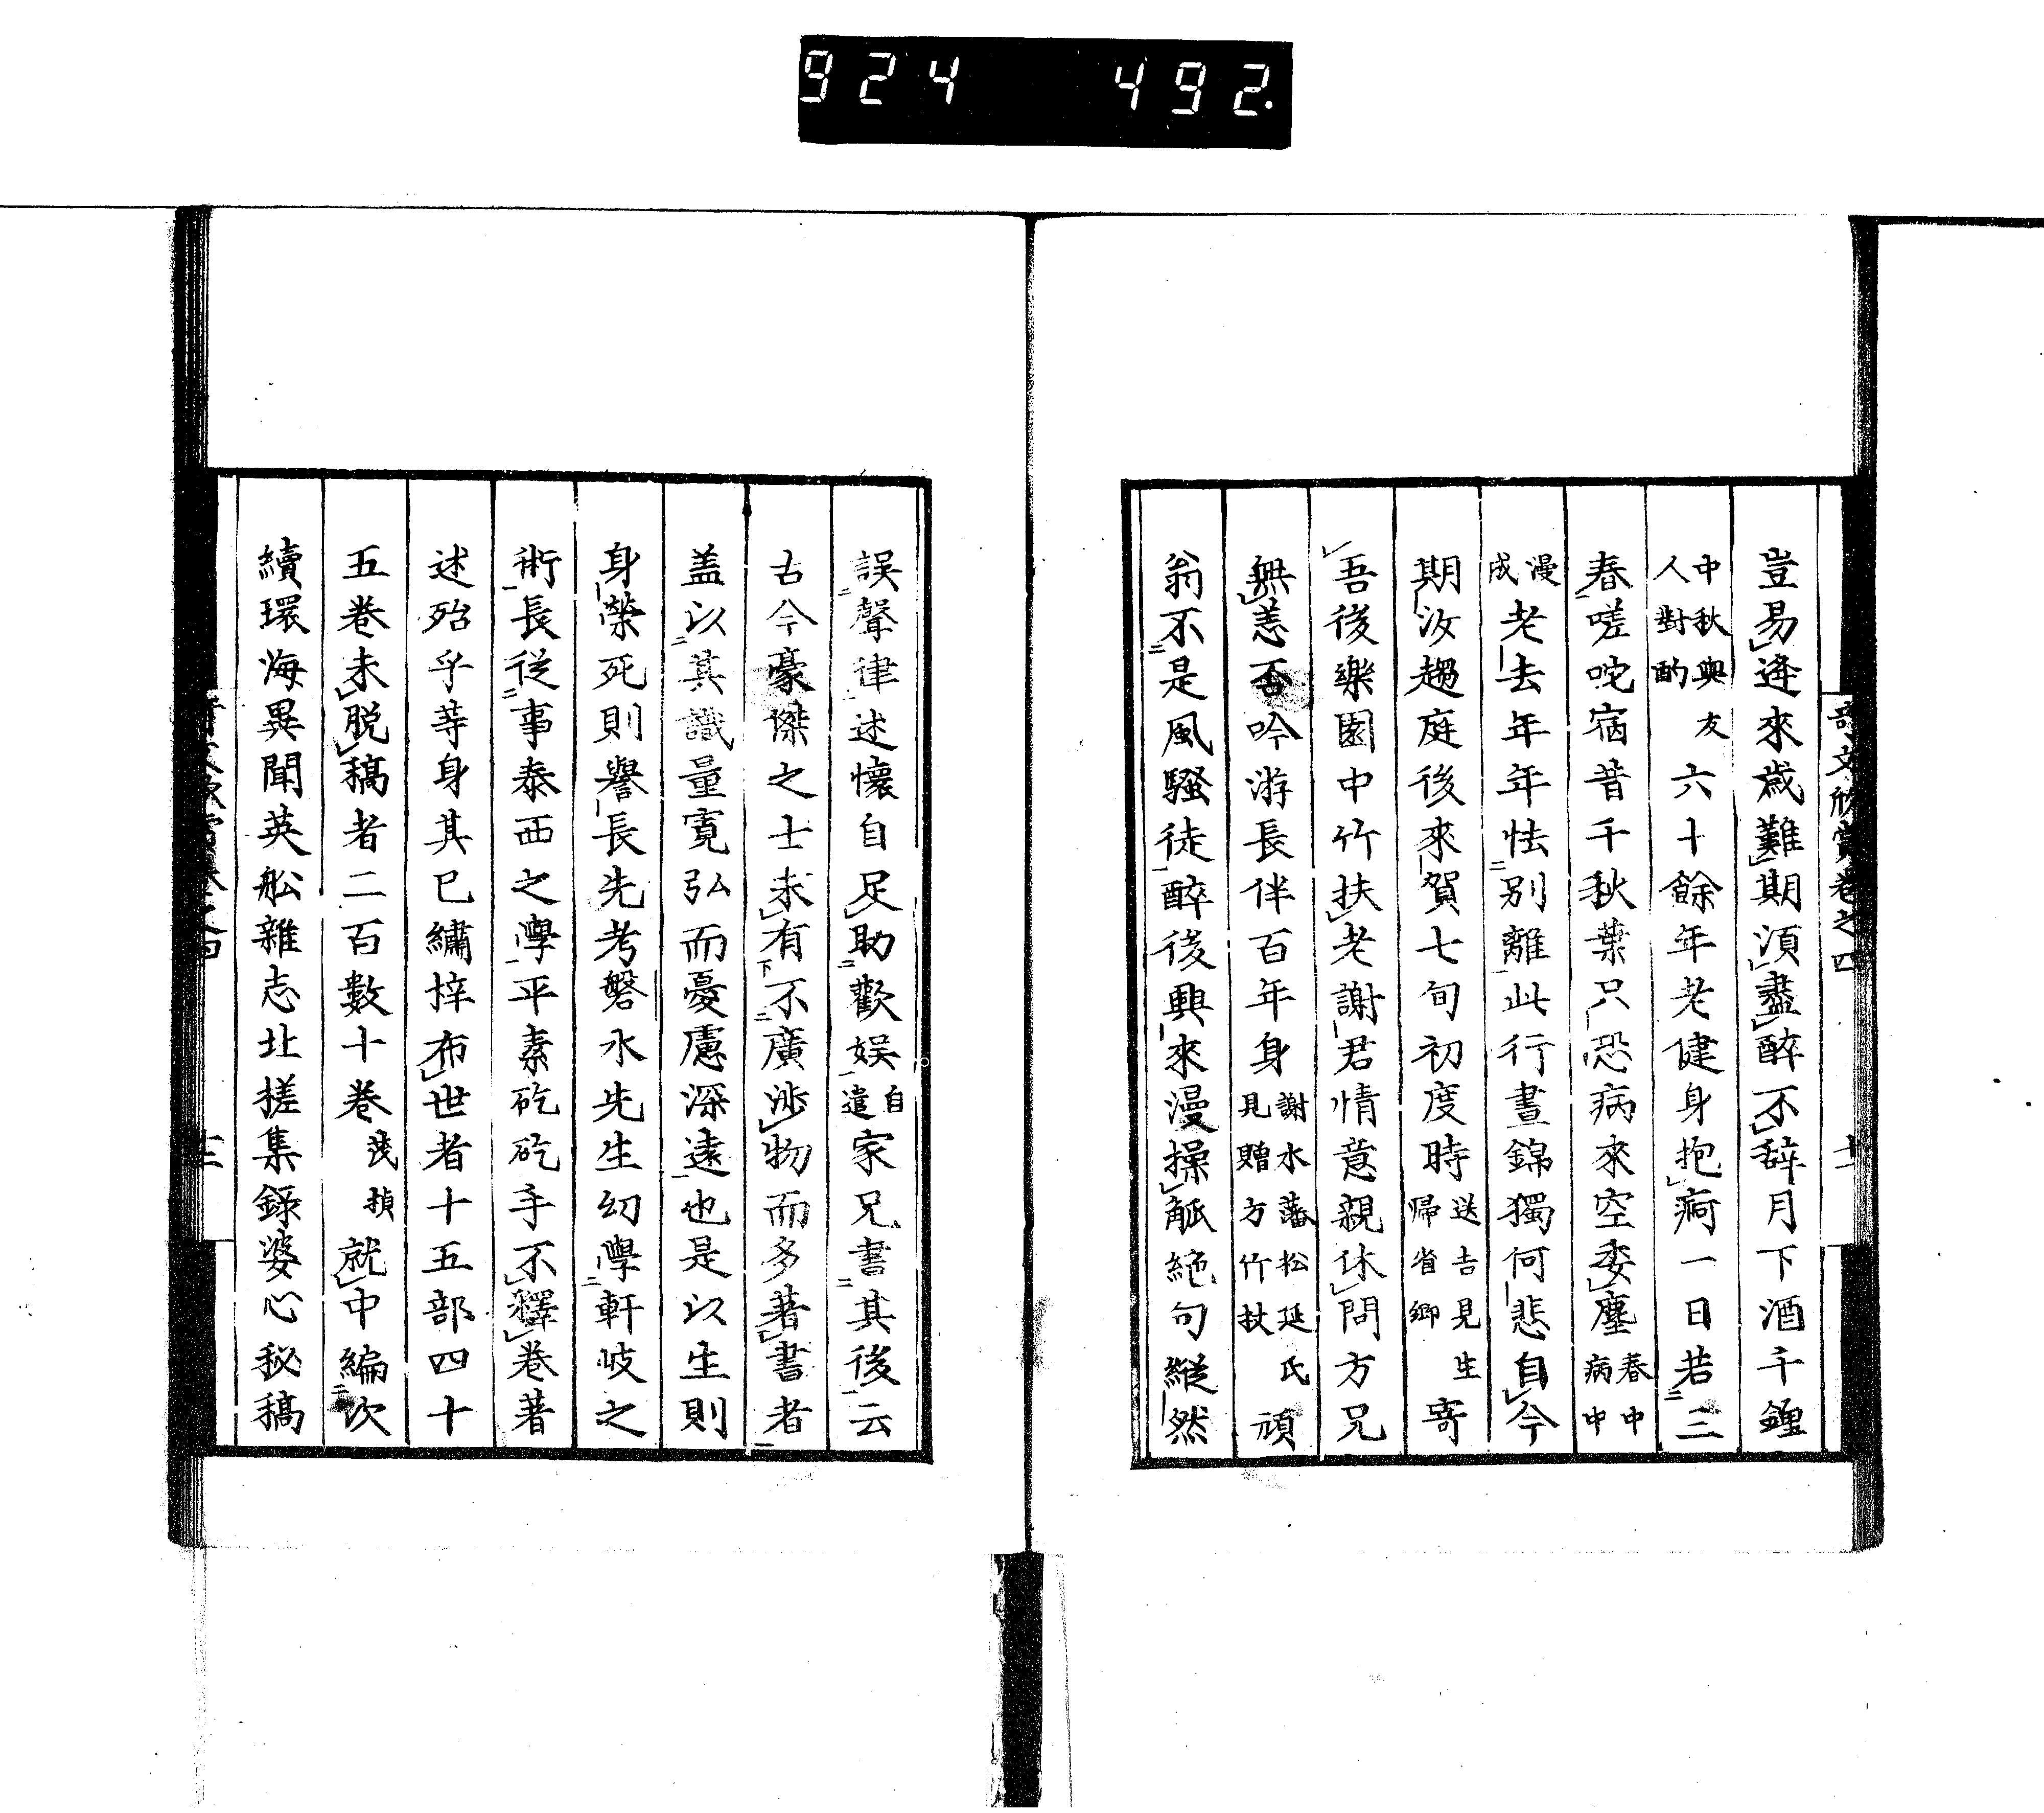 924 492.
奇文欣賞卷之四 十二
豈易逢來歲難期須盡醉不辭月下酒千鍾
中秋與友人對酌 六十餘年老健身抱痾一日若三
春嗟咜宿昔千秋葉只恐病來空委塵 春中病中
漫成 老去年年怯別離此行晝錦獨何悲自今
期汝趨庭後來賀七旬初度時 送吉見生帰省郷 寄
吾後樂園中竹扶老謝君情意親休問方兄
無恙否吟游長伴百年身 謝水藩松延氏見贈方竹杖 頑
翁不是風騷徒醉後興來漫操觚絶句縦然
誤聲律述懷自足助歡娯 自遣 家兄書其後云
古今豪傑之士未有不廣渉物而多著書者
盖以其識量寛弘而憂慮深遠也是以生則
身榮死則譽長先考磐水先生幻學軒岐之
術長從事泰西之學平素矻矻手不釋巻著
述殆乎等身其已繡梓布世者十五部四十
五卷未脱稿者二百數十巻 茂楨 就中編次
續環海異聞英舩雜志北搓集錄婆心秘稿